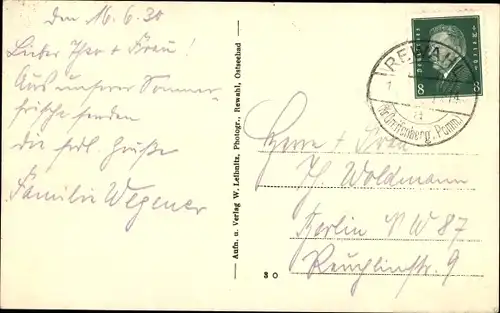 den 16.6.30
Lieber Theo + Frau!
Aus unserer Sommer-
frische senden
die hrzl. Grüße
Familie Wegener
Aufn. u. Verlag W. Leibnitz, Photogr., Rewahl, Ostseebad
30
Deutsches Reich
8 8
REWAHL
(Kr. Greifenberg, Pomm.)
Herrn + Frau
Th. Woldmann
Berlin NW 87
Reuchlinstr. 9